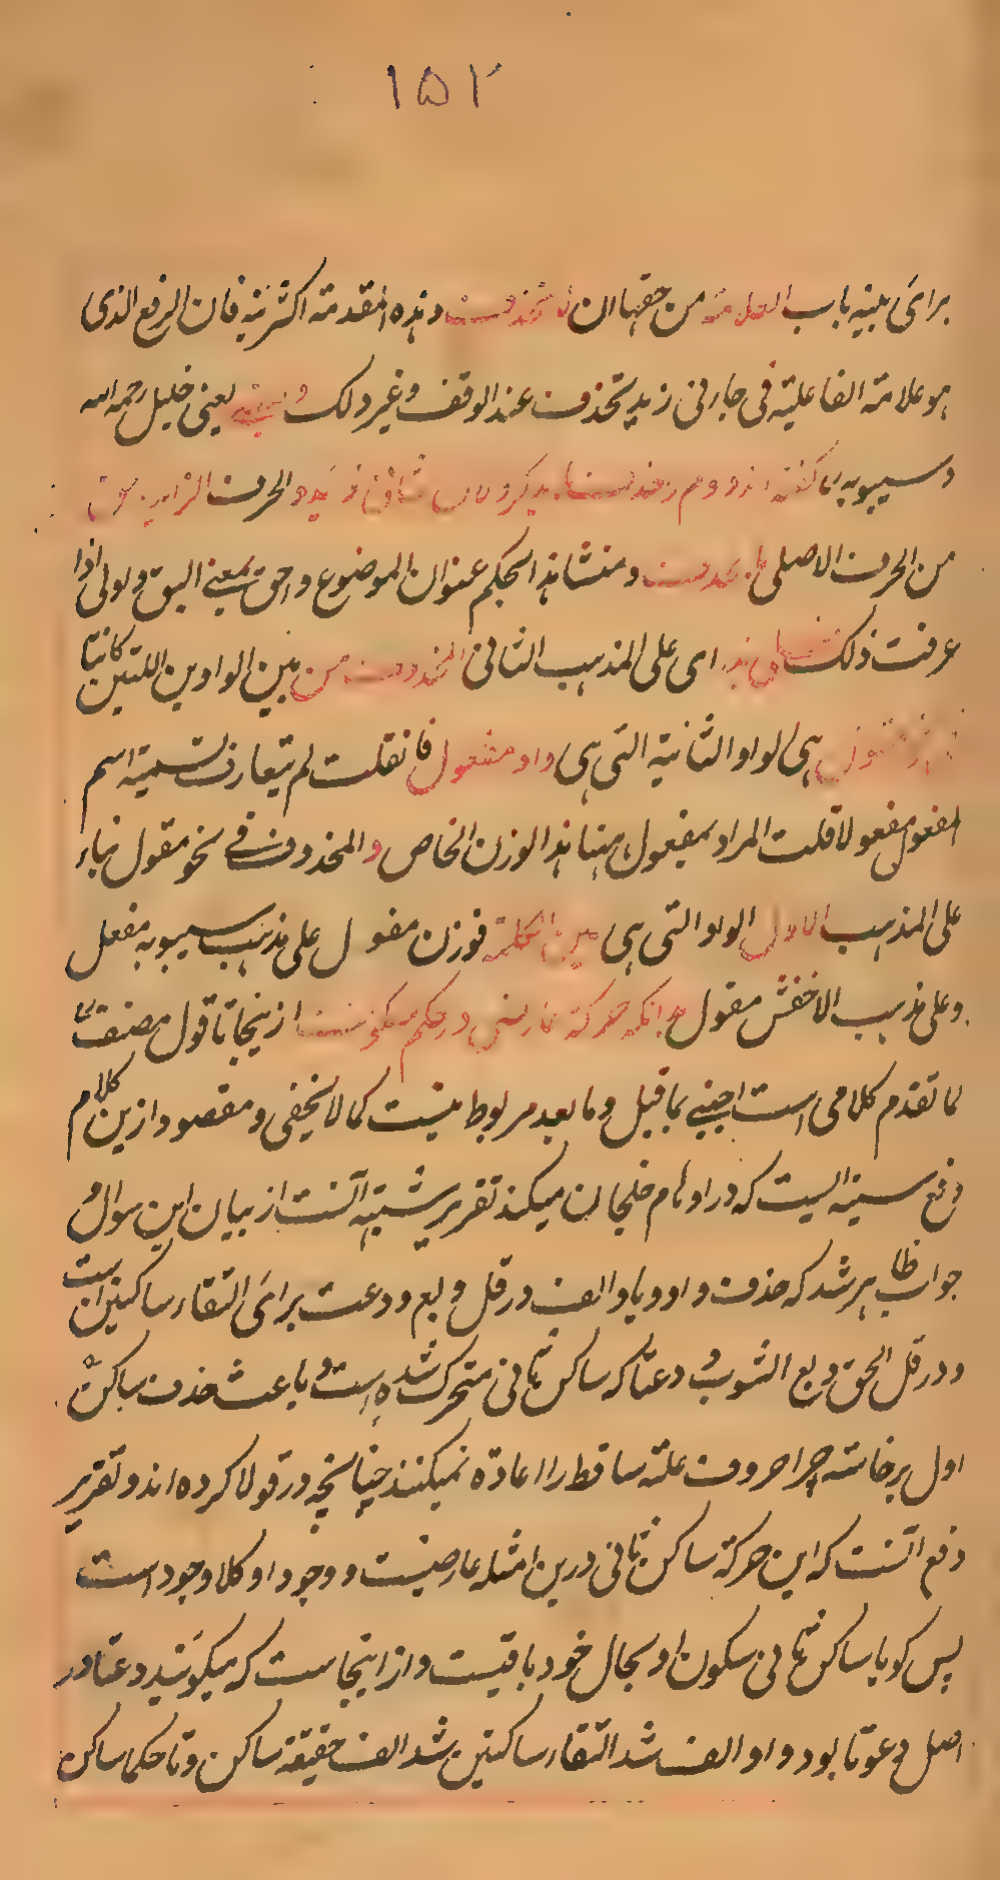 ۱۵۲
برای بنیه باب العلامة من حقها ان لا تحذف و هذه المقدمة اکثریة فان الرفع الذی
هو علامة الفاعلیة فی جاءنی زید تحذف عند الوقف و غیر ذلک و یعنی خلیل رحمه الله
و سیبویه گفته اند دوم زید و الحرف الزاید
من الحرف الاصلی بالحذف و منشا هذا الحکم عنوان الموضوع و احق بمعنی الیق و اولی اذا
عرفت ذلک ای علی المذهب الثانی المحذوف من بین الواوین اللتین کانتا
هی الواو الثانیة التی هی واو مفعول فانقلت لم یتعارف تسمیة اسم
المفعول مفعولا قلت المراد بمفعول ههنا هذا الوزن الخاص و المحذوف فی نحو مقول بناء
علی المذهب الاول الواو التی هی عین الکلمة فوزن مقول علی مذهب سیبویه مفعل
و علی مذهب الاخفش مفول بدانکه حرکة عارضی در حکم سکونست ازینجا تا قول مصنف
لما تقدم کلامی است اجنبی بما قبل و ما بعد مربوط نیست کما لا یخفی و مقصود ازین کلام
دفع شبهه ایست که در اوهام خلجان میکند تقریر شبهه آنست از بیان این سوال و
جواب ظاهر شد که حذف واو و یا و الف در قل و بع و دعت برای التقاء ساکنین است
و در قل الحق و بع الثوب و دعتا که ساکن ثانی متحرک شده است و باعث حذف ساکن
اول برخاسته چرا حروف علة ساقط را اعادة نمیکنند چنانچه در قولا کرده اند و تقریر
دفع آنست که این حرکة ساکن ثانی درین امثله عارضیست و وجود او کلا وجود است
پس گویا ساکن ثانی سکون او بحال خود باقیست و از اینجاست که میگویند دعتا در
اصل دعوتا بود واو الف شد التقاء ساکنین شد الف حقیقة ساکن و تا حکما ساکن